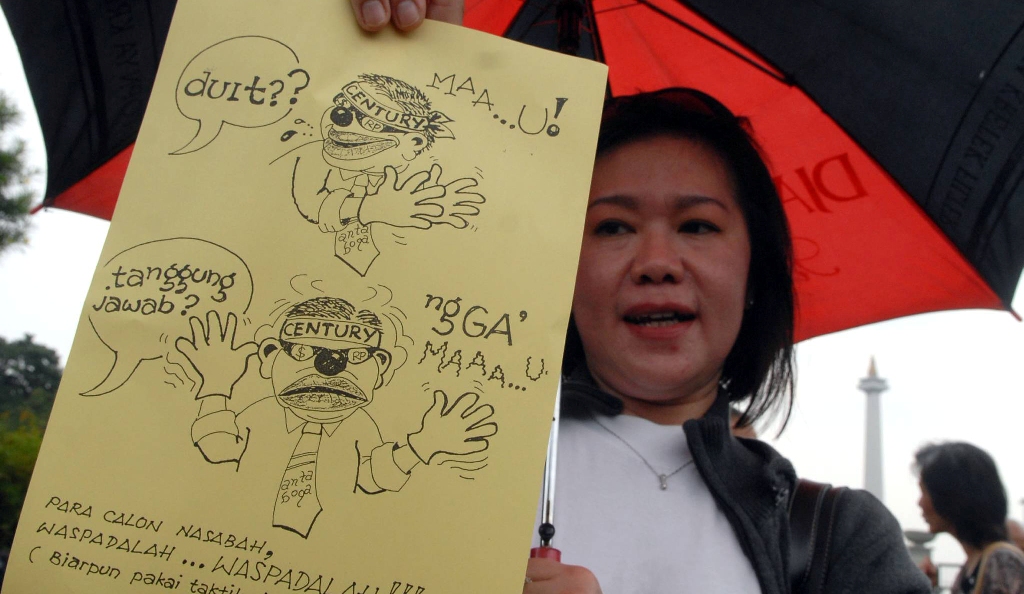 duit??
MAA...U!
CENTURY
RP
anta
boga
tanggung
jawab?
ngGA'
MAAA...U
CENTURY
$
RP
anta
boga
PARA CALON NASABAH,
WASPADALAH ... WASPADALAH!!!
( Biarpun pakai
DIA